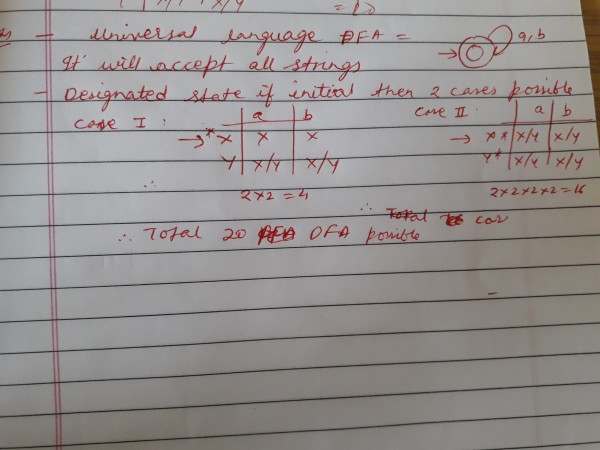 - Universal language DFA = a,b
It will accept all strings
- Designated state if initial then 2 cases possible
Case I :
a b
→ *X X X
Y X/Y X/Y
∴ 2×2 = 4
Case II :
a b
→ X* X/Y X/Y
Y* X/Y X/Y
2×2×2×2 = 16
∴ Total 20 DFA possible